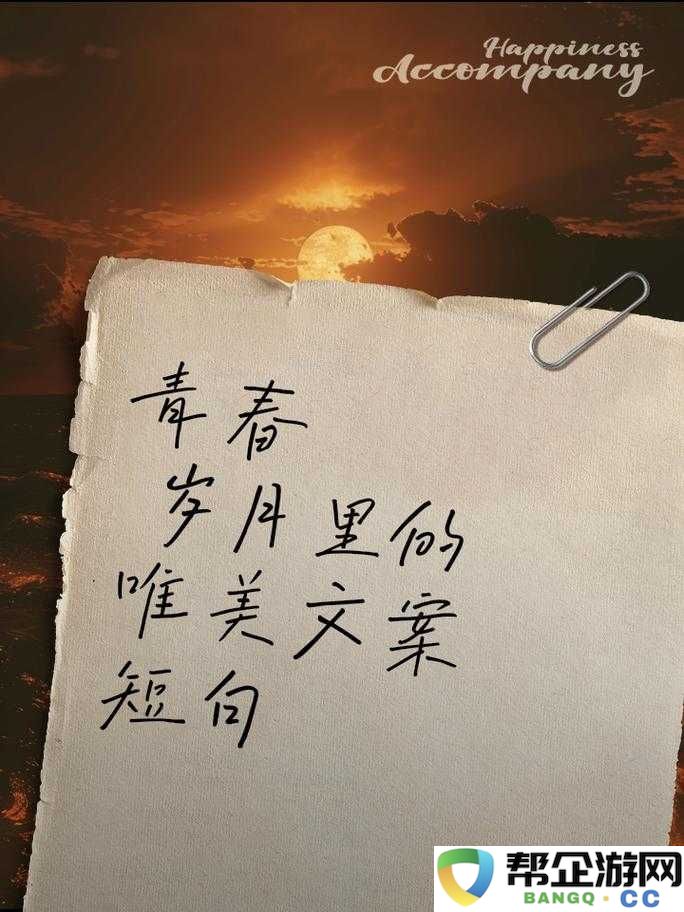 Happiness
Accompany
青春
岁月里的
唯美文案
短句
帮企游网
BANGQ·CC